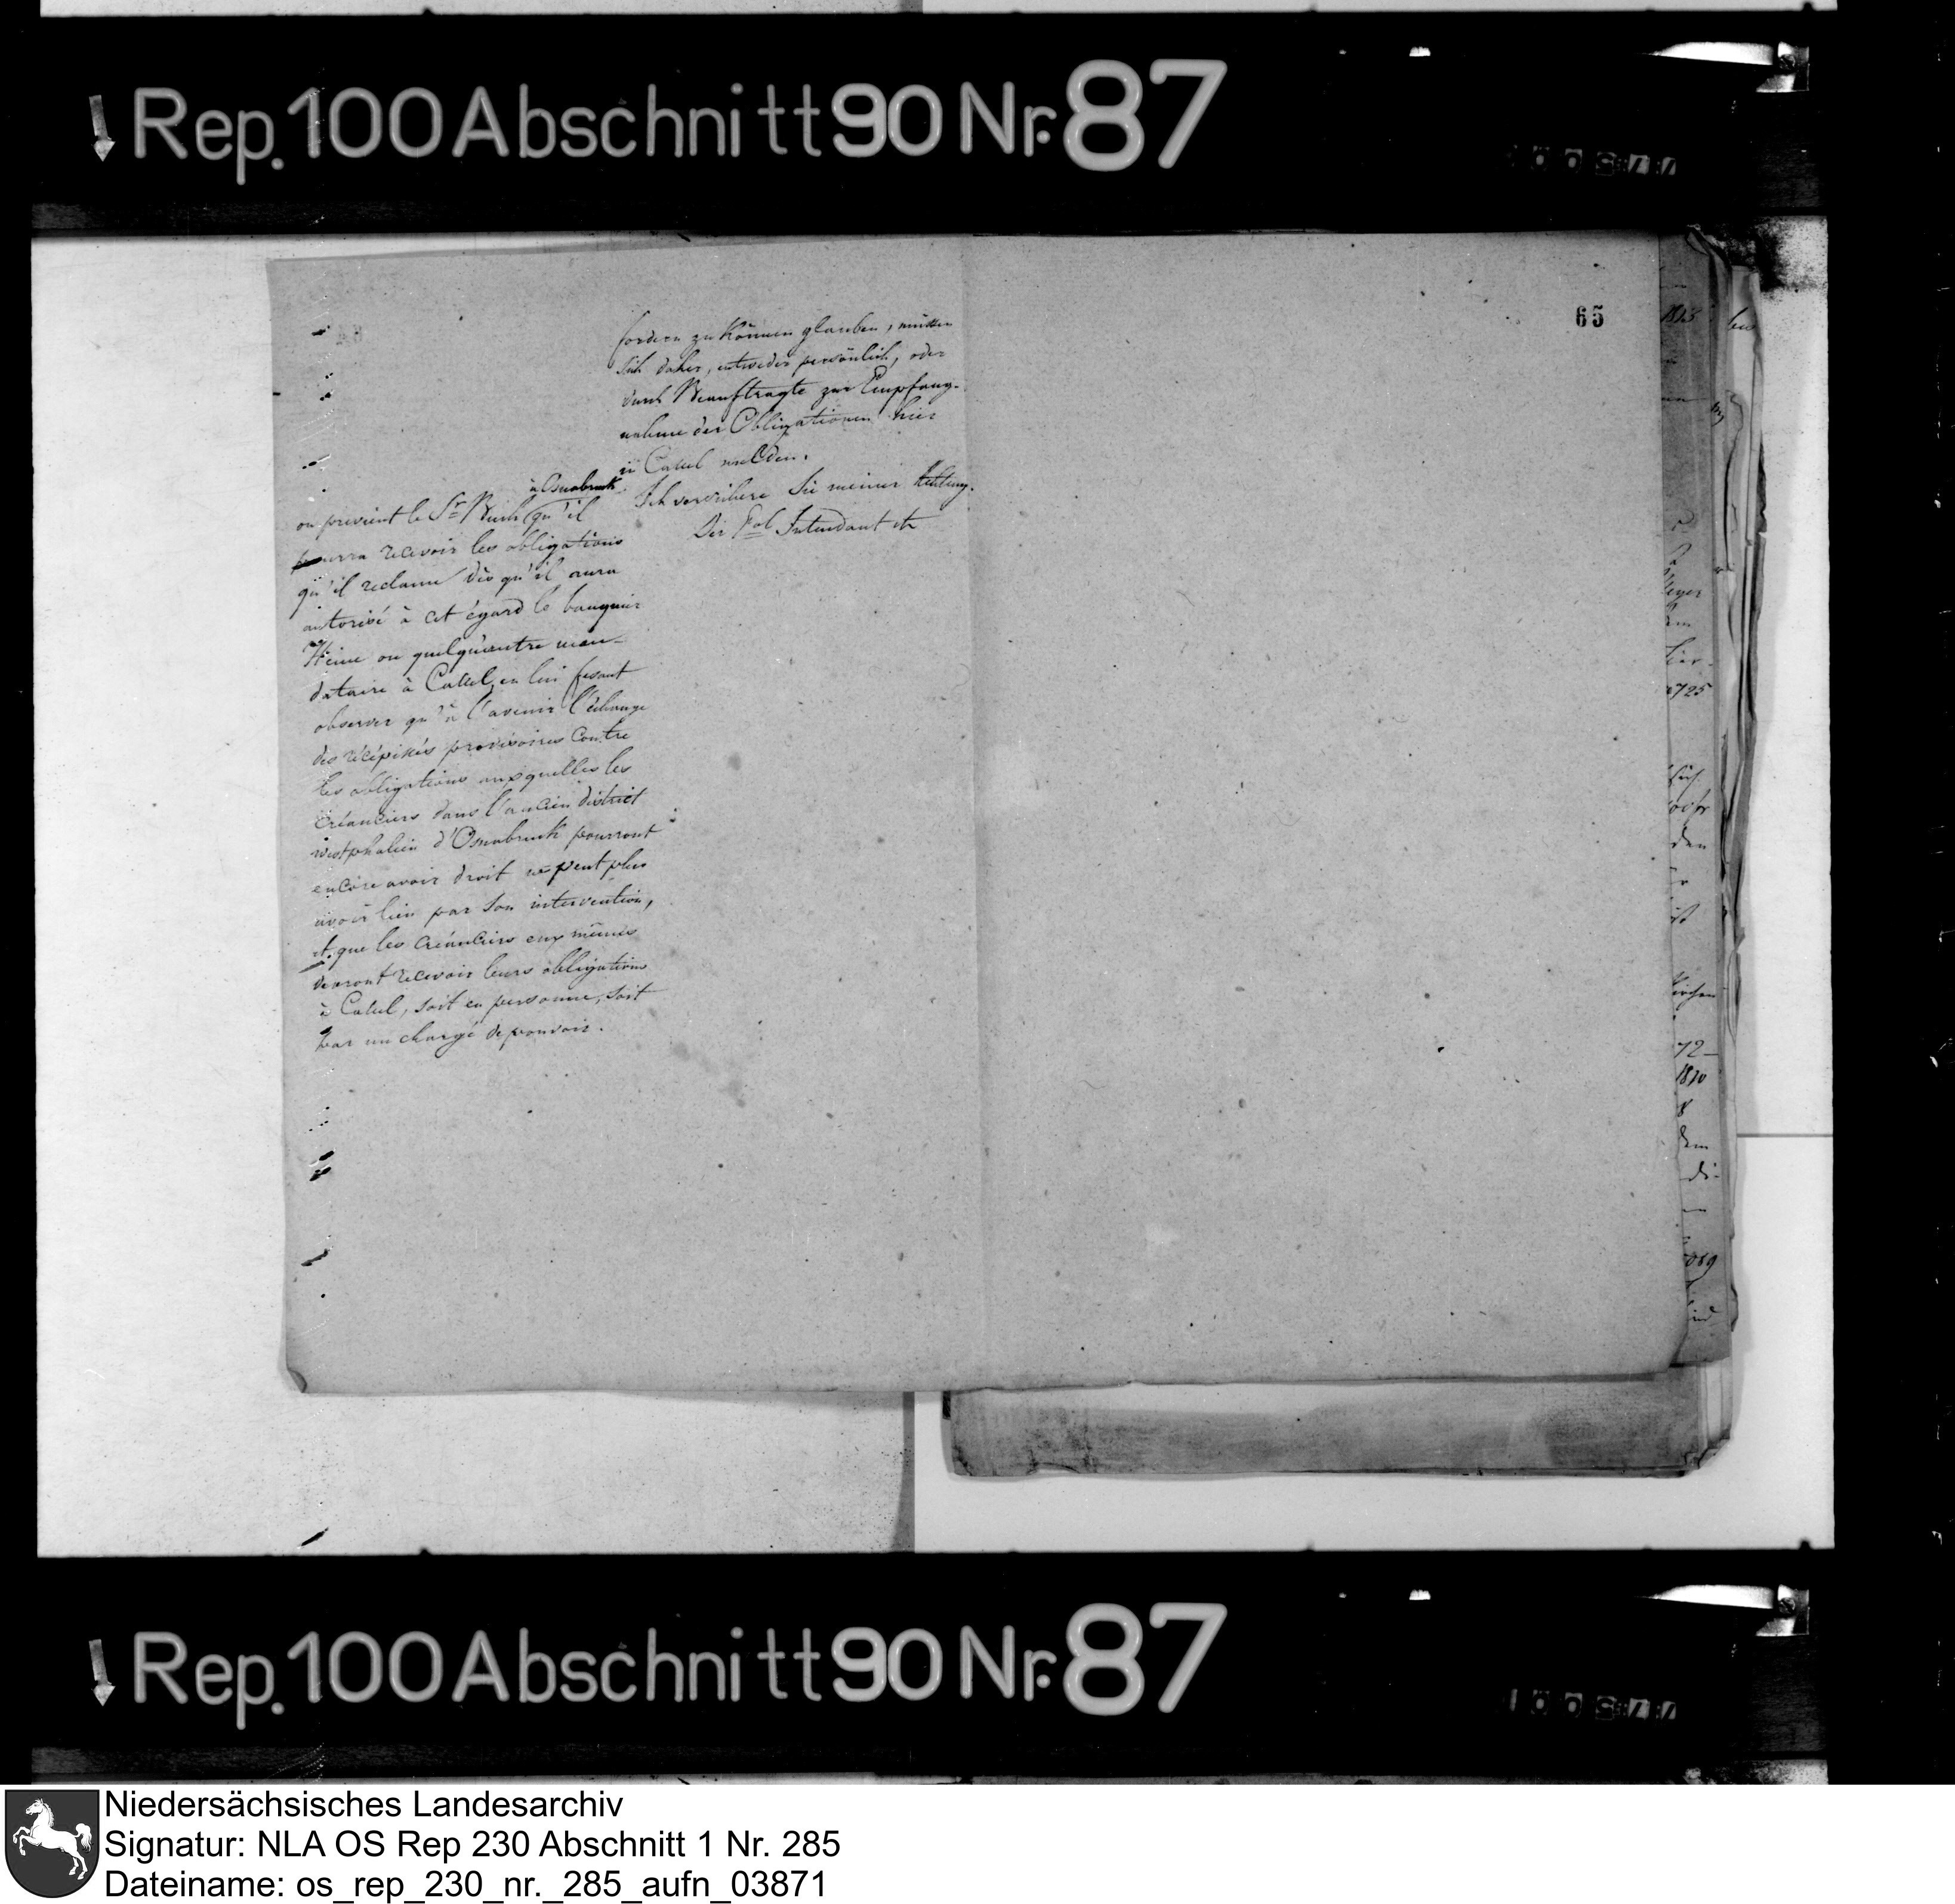 Rep. 100 Abschnitt 90 Nr. 87
65
fordern zu können glauben, müssen
sich daher, entweder persönlich, oder
durch Beauftragte zur Empfang-
nahme der Obligationen hier
in Cassel melden.
Ich versichere Sie meiner Achtung.
Der Gal Intendant
à Osnabruck
on previent le Sr. qu'il
pourra recevoir les obligations
qu'il reclame dès qu'il aura
autorisé à cet égard le banquier
Heine ou quelqu'autre man-
dataire à Cassel, en lui fesant
observer qu'à l'avenir l'échange
des récépissés provisoires contre
les obligations auxquelles les
créanciers dans l'ancien district
westphalien d'Osnabruck pourront
encore avoir droit ne peut plus
avoir lieu par son intervention,
et que les créanciers eux mêmes
devront recevoir leurs obligations
à Cassel, soit en personne, soit
par un chargé de pouvoir.
1813
725
72
1810
Rep. 100 Abschnitt 90 Nr. 87
Niedersächsisches Landesarchiv
Signatur: NLA OS Rep 230 Abschnitt 1 Nr. 285
Dateiname: os_rep_230_nr._285_aufn_03871